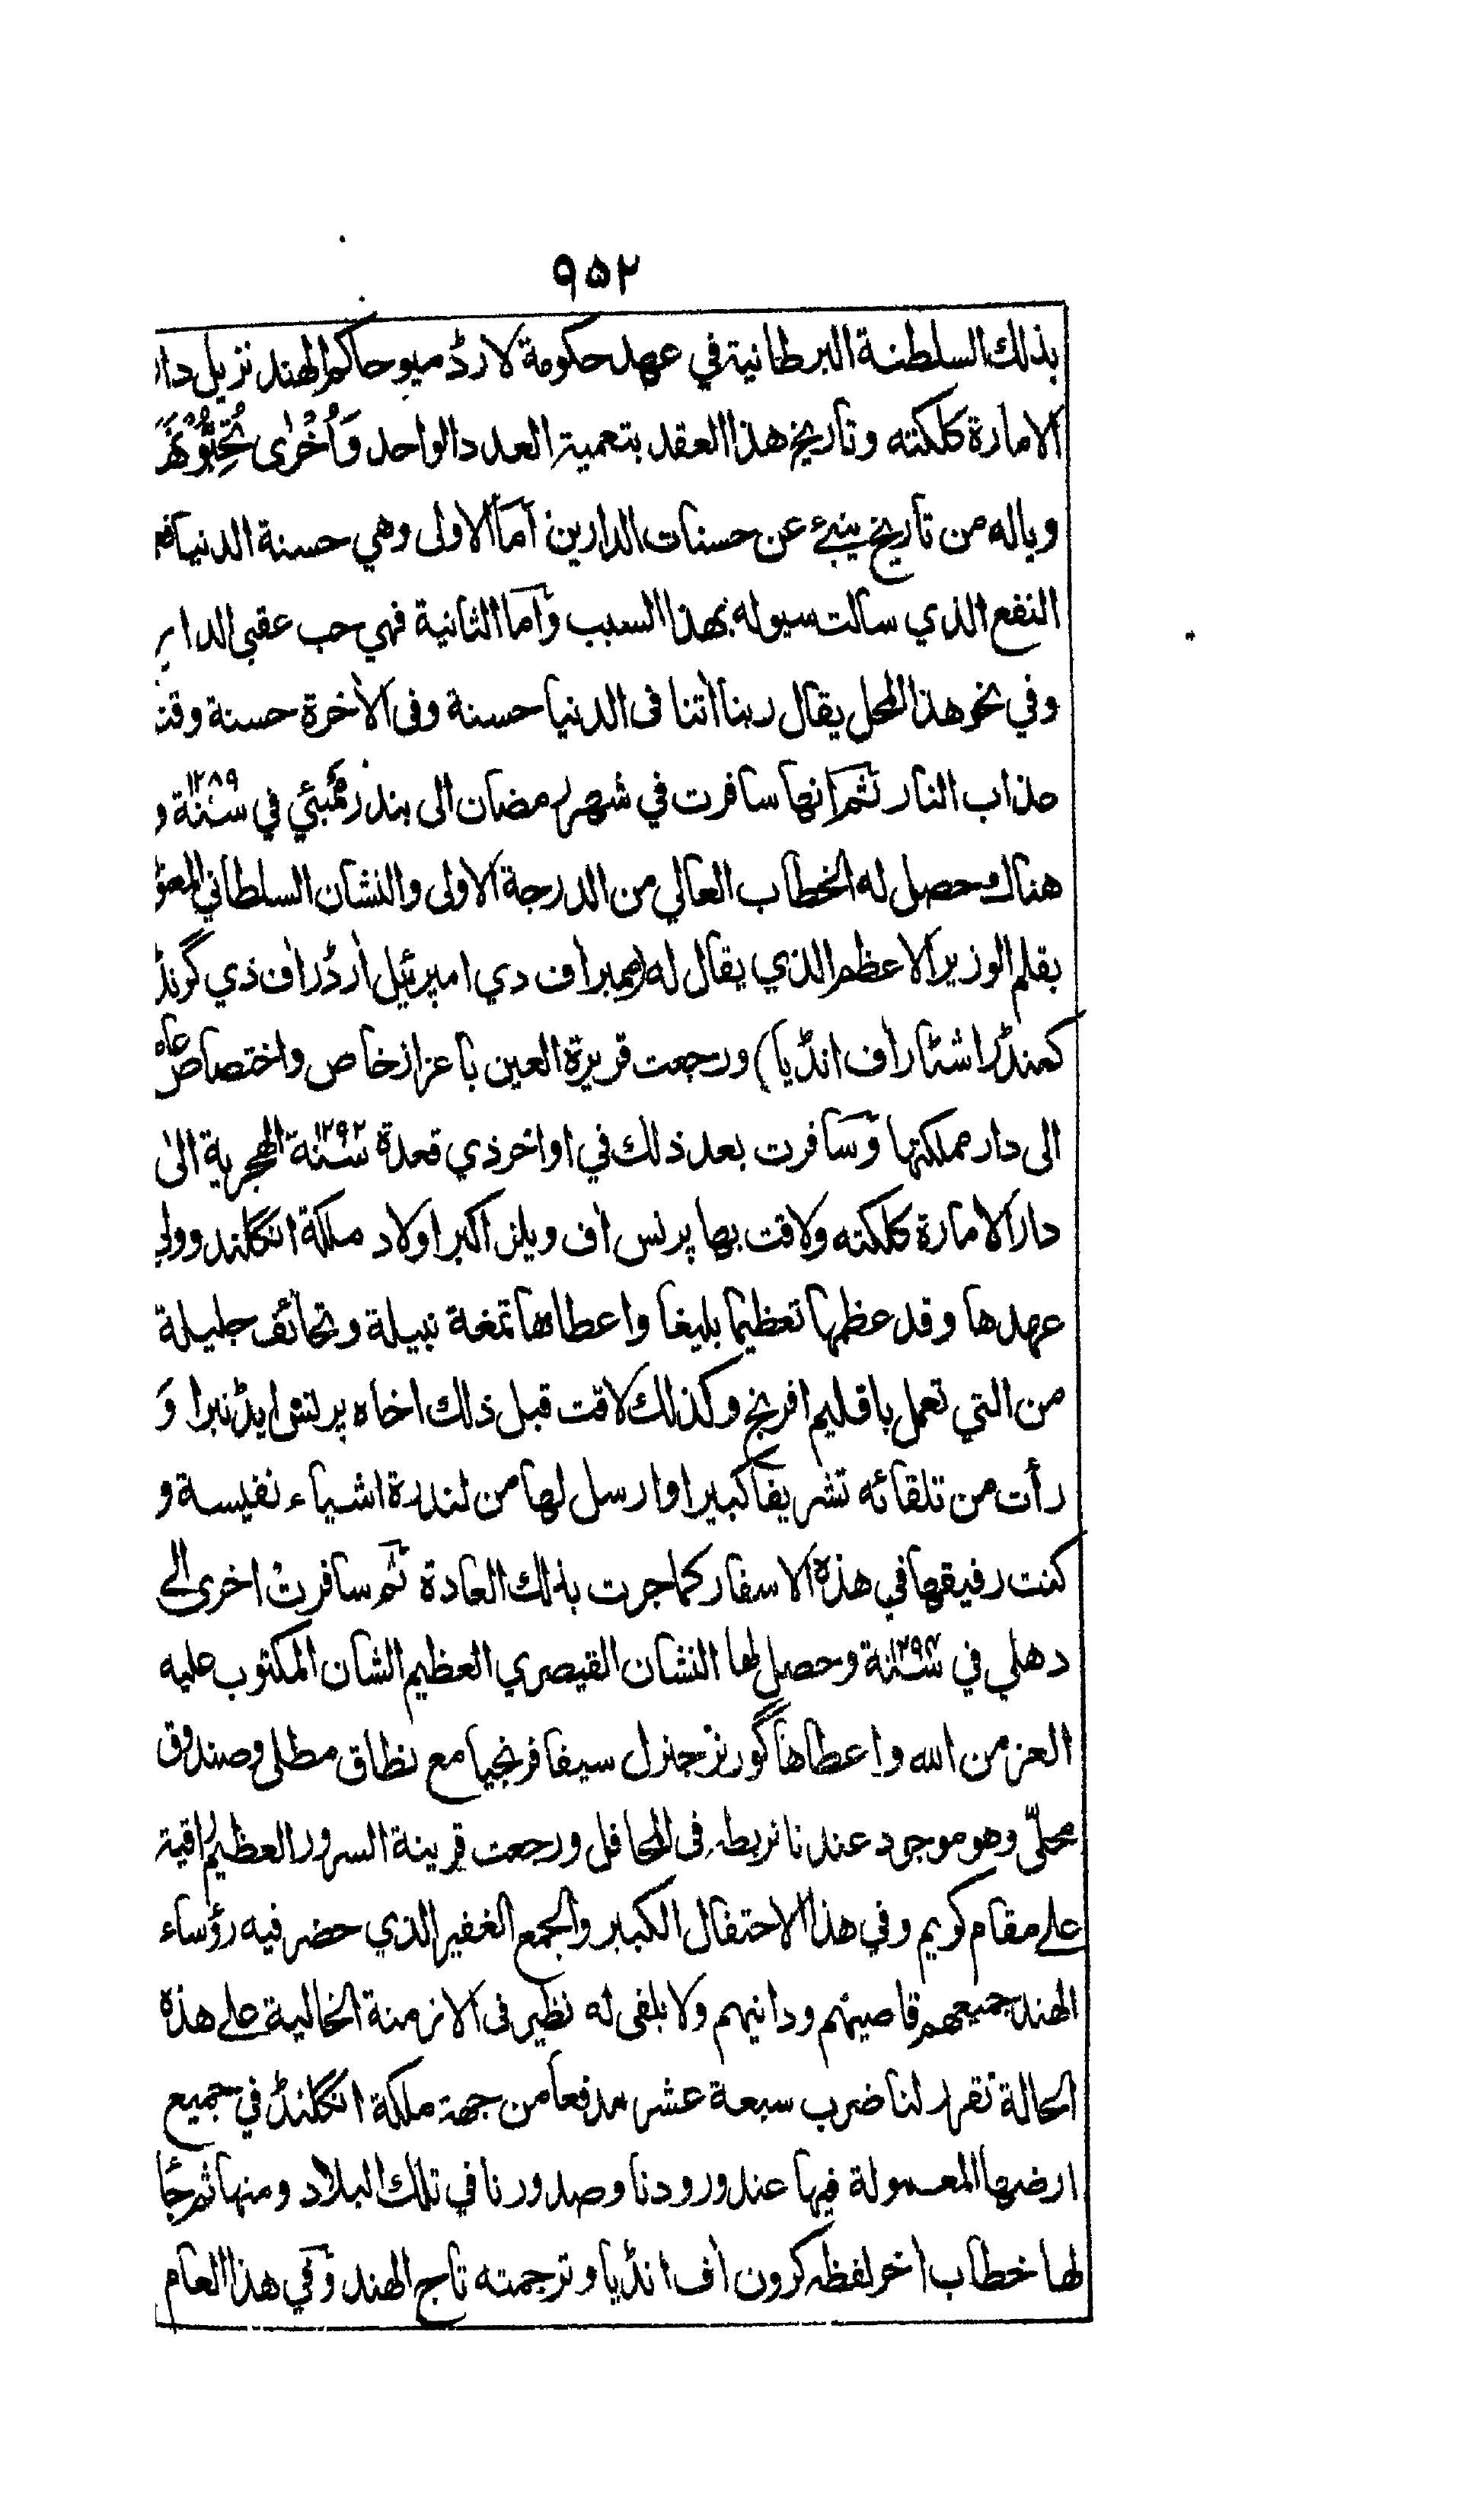 ٩٥٢
بذلك السلطنة البرطانية في عهد حكومة لارڈ ميو حاكم الهند نزيل دار
الامارة كلكته وتاريخ هذا العقد بتعمية العدد الواحد وَأُخْرٰى تُحِبُّوْنَهَا
وياله من تاريخ ينبئ عن حسنات الدارين اما الاولى وهي حسنة الدنيا
النفع الذي سالت سيوله بهذا السبب وآما الثانية فهي حب عقبى الدار
وفي نحو هذا المحل يقال ربنا اٰتنا فى الدنيا حسنة وفى الاٰخرة حسنة وقنا
عذاب النار ثم انها سافرت في شهر رمضان الى بندر ممبئي في سنة ١٢٨٩ و
هناك حصل له الخطاب العالي من الدرجة الاولى والنشان السلطاني
بقلم الوزير الاعظم الذي يقال له (ممبر اف دي امپرئيل ارڈر اف ذي گرنڈ
كمنڈر اشٹار اف انڈيا) ورجعت قريرة العين باعزاز خاص واختصاص عام
الى دار مملكتها وسافرت بعد ذلك في اواخر ذي قعدة سنة ١٢٩٢ الهجرية الى
دار الامارة كلكته ولاقت بها پرنس اف ويلز اكبر اولاد ملكة انگلند وولي
عهدها وقد عظمها تعظيما بليغا واعطاها تمغة نبيلة وتحائف جليلة
من التي تعمل باقليم افرنج وكذلك لاقت قبل ذلك اخاه پرنس ايڈنبرا وَ
رأت من تلقائه تشريفا كبيرا وارسل لها من لندرة اشياء نفيسة و
كنت رفيقها في هذه الاسفار كما جرت بذلك العادة ثم سافرت اخرى الى
دهلي في سنة ١٢٩٣ وحصل لها النشان القيصري العظيم الشان المكتوب عليه
العز من الله واعطاها گورنر جنرل سيفا فرنجيا مع نطاق مطلى وصندوق
محلّى وهو موجود عندنا نربطه فى المحافل ورجعت قرينة السرور العظيم راقية
على مقام كريم وفي هذا الاحتفال الكبير والجمع الغفير الذي حضر فيه رؤساء
الهند جميعهم قاصيهم ودانيهم ولا يلفى له نظير فى الازمنة الخالية على هذه
الحالة تقرر لنا ضرب سبعة عشر مدفعا من جهة ملكة انگلنڈ في جميع
ارضها المعمولة فيها عند ورودنا وصدورنا في تلك البلاد ومنها ثم جاء
لها خطاب اٰخر لفظه كرون اٰف انڈيا وترجمته تاج الهند وفي هذا العام